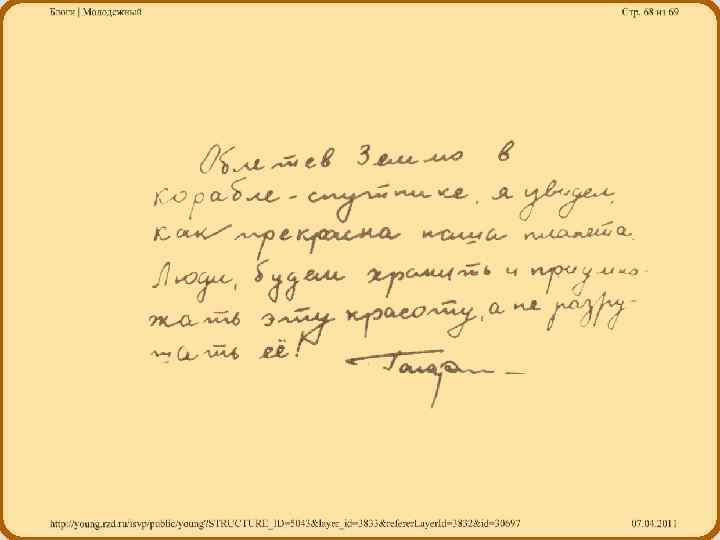 Блоги | Молодежный
Стр. 68 из 69
Облетев Землю в
корабле-спутнике, я увидел,
как прекрасна наша планета.
Люди, будем хранить и приумно-
жать эту красоту, а не разру-
шать её!
Гагарин
http://young.rzd.ru/isvp/public/young?STRUCTURE_ID=5043&layer_id=3833&referer.LayerId=3832&id=30697
07.04.2011